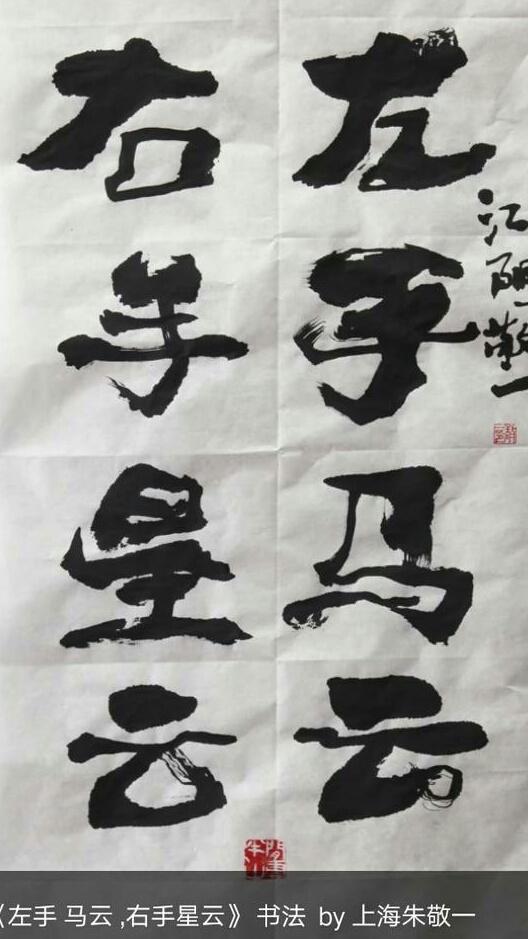 左手马云
右手星云
江
敬一
《左手 马云 ,右手星云》 书法 by 上海朱敬一